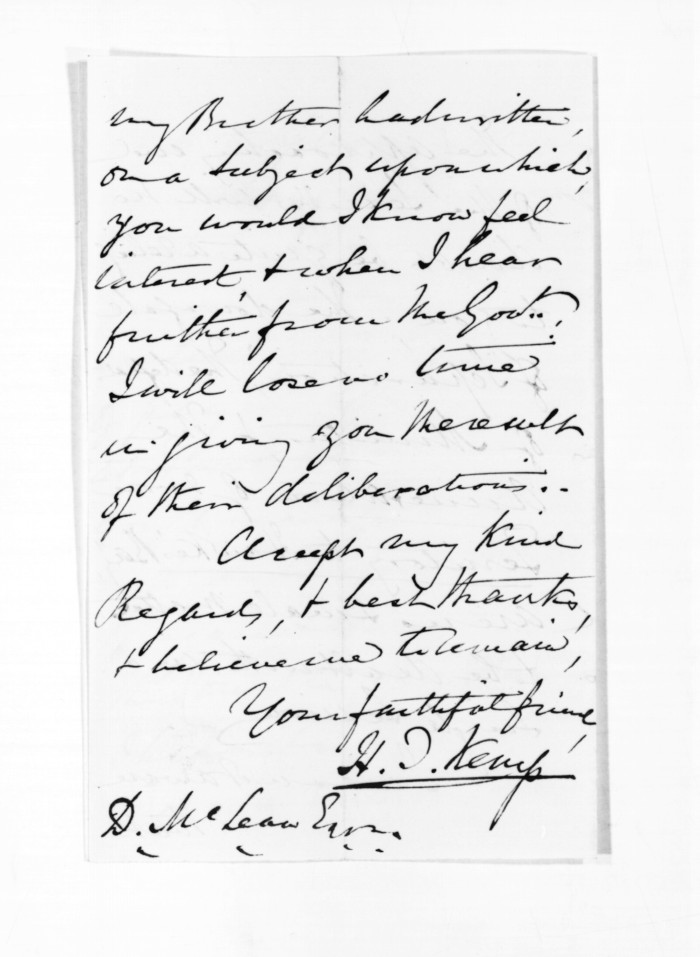 my Brother had written,
on a subject upon which,
you would I know feel
interest, & when I hear
further from the Govt.,
I will lose no time
in giving you the result
of their deliberations..
Accept my Kind
Regards, & best thanks,
& believe me to remain,
Your faithful friend,
H. T. Kemp
D. McLean Esqre.